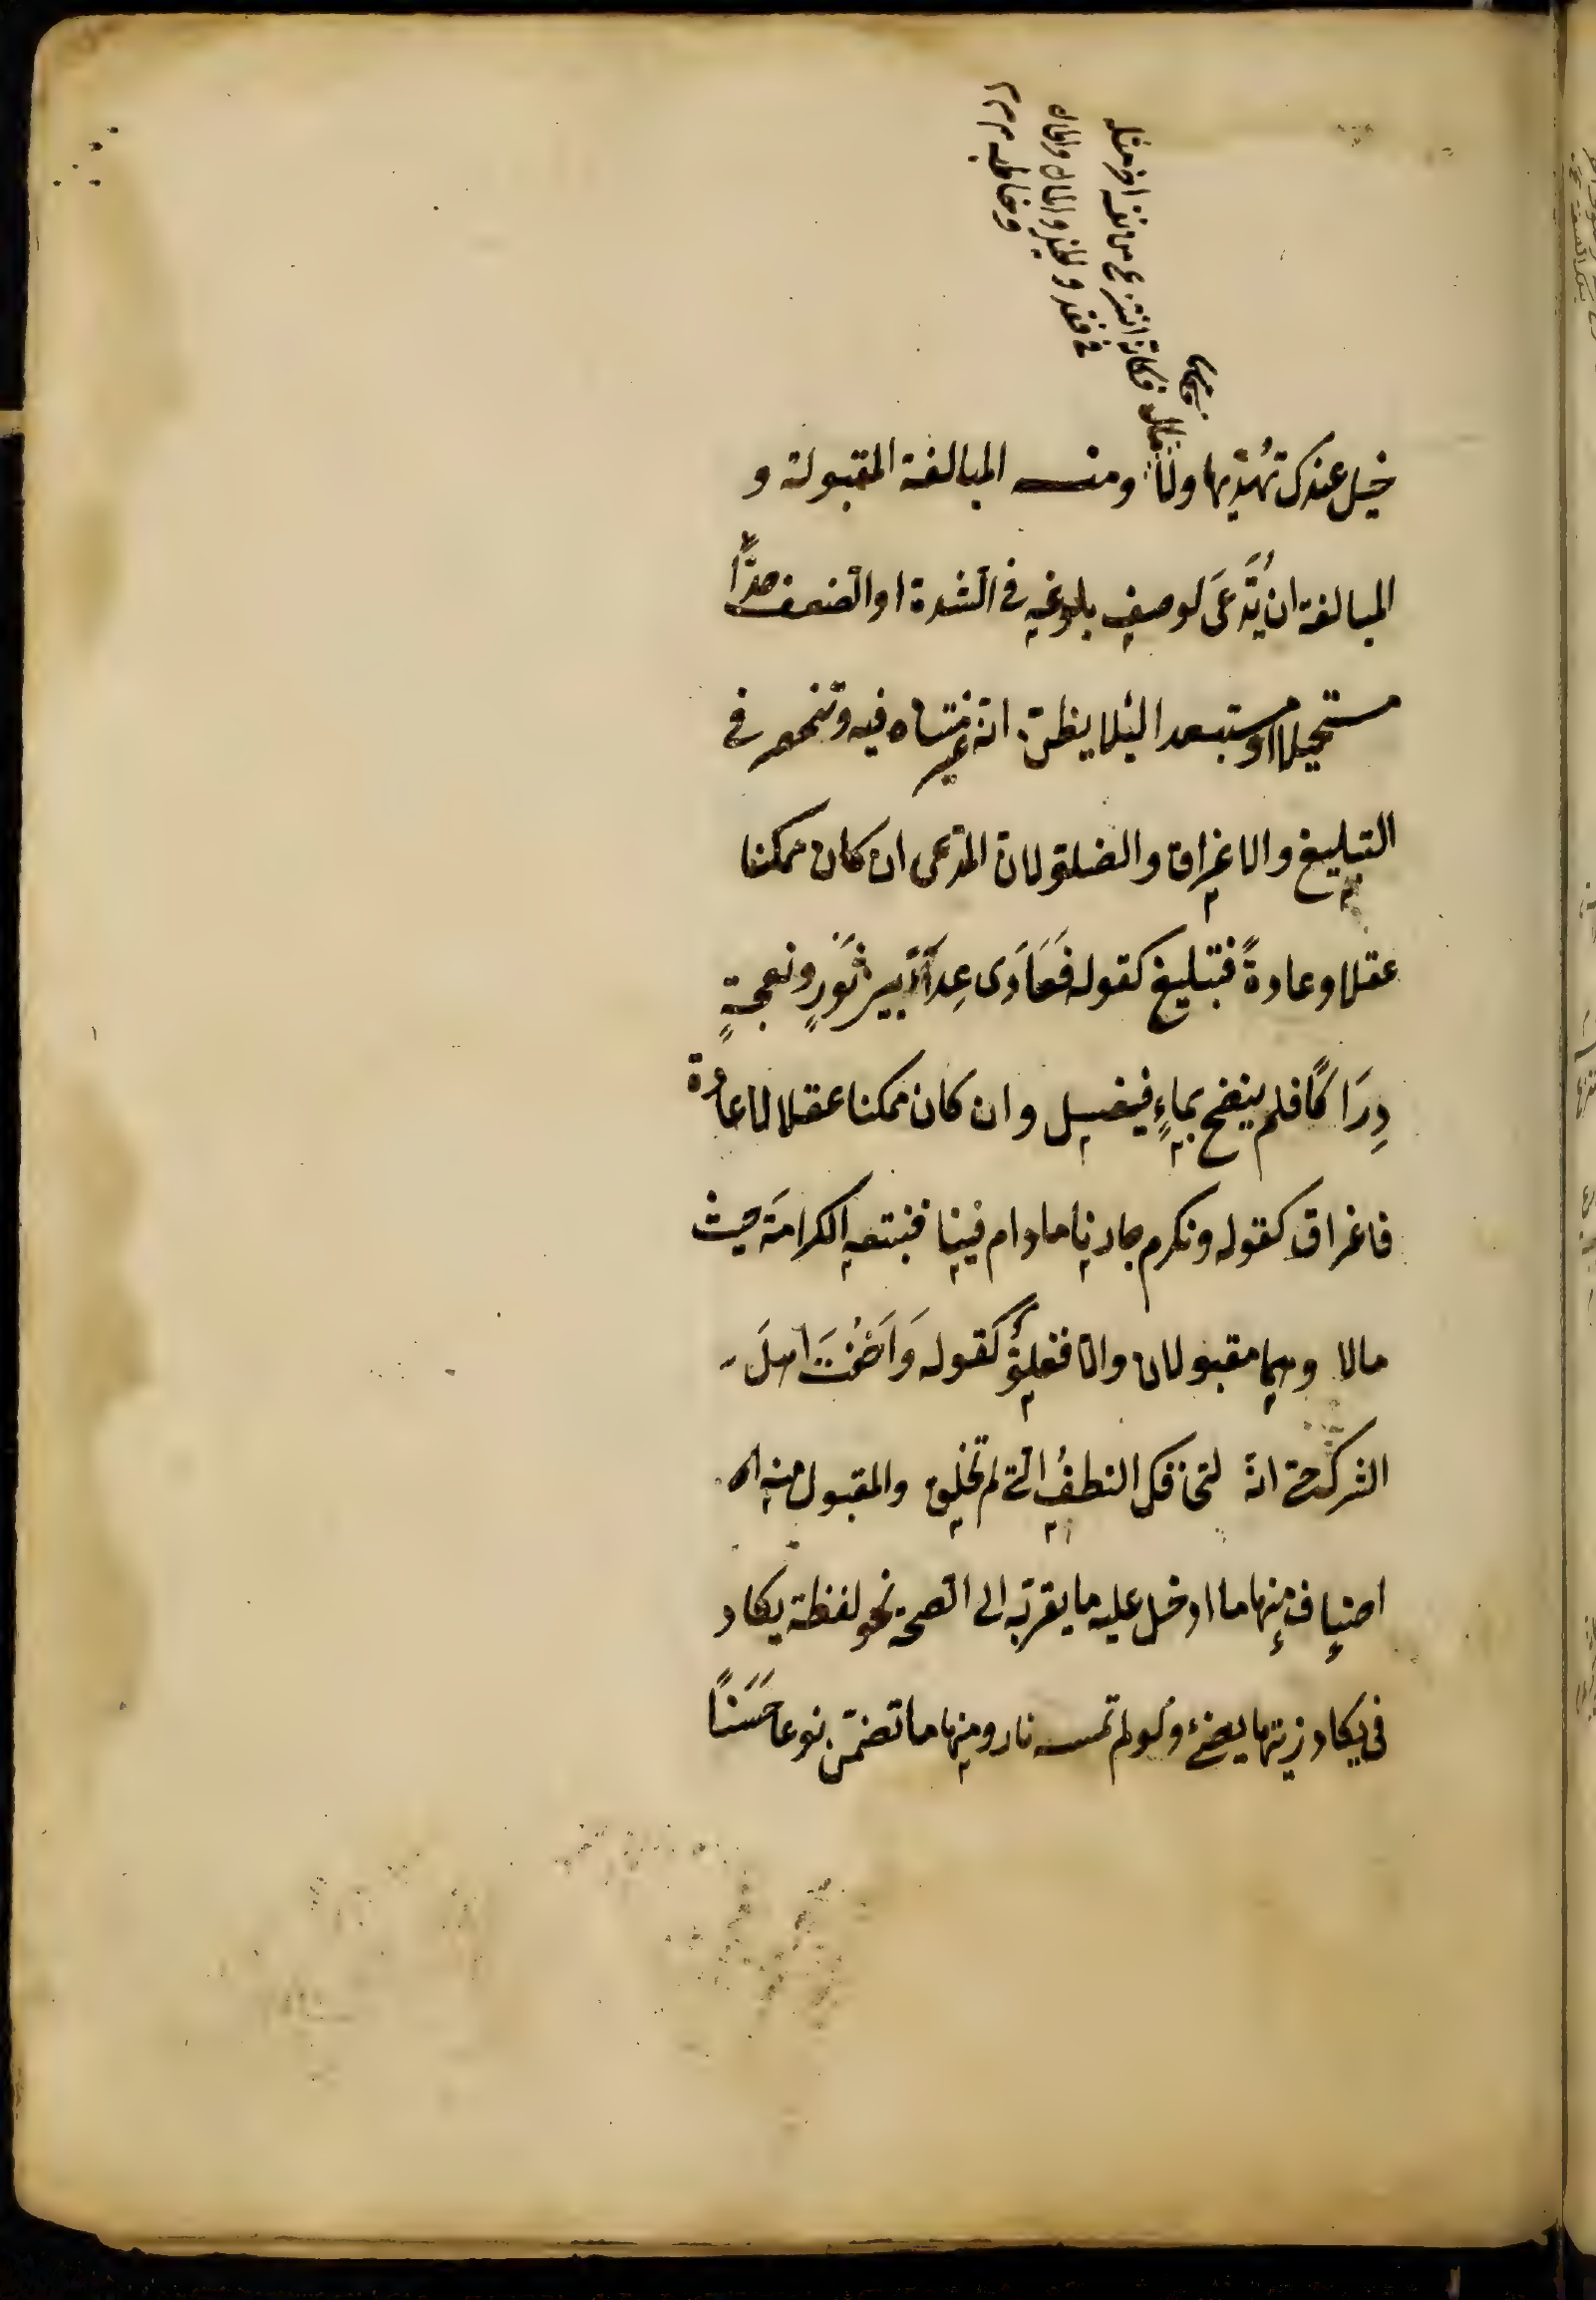 خيل عندك تهديها ولا مال ومنه المبالغة المقبولة و
المبالغة ان يُدَّعَى لوصفٍ بلوغه في الشدة او الضعف حدًّا
مستحيلا او مستبعدا لئلا يظنّ انه غير متناه فيه وتنحصر في
التبليغ والاغراق والغلو لان المدعى ان كان ممكنا
عقلا وعادةً فتبليغ كقوله فَعَادَى عِدَاءً بين ثَورٍ ونعجةٍ
دِرَاكًا فلم ينضح بماءٍ فيغسل وان كان ممكنا عقلا لا عادة
فاغراق كقوله ونكرم جارنا مادام فينا فنتبعه الكرامَة حيث
مالا وهما مقبولان والا فغلوٌّ كقوله وَاَخَفْتَ اهلَ
الشرك حتى انه لتخافك النطفُ التي لم تخلق والمقبول منه
اصناف منها ما ادخل عليه ما يقربه الى الصحة نحو لفظة يكاد
في يكاد زيتها يضئ ولو لم تمسه نار ومنها ما تضمّن نوعا حَسَنًا
فكانه انتزع من نفسه اخر مثله
في فقد الخيل والمال والحال
وخاطبه